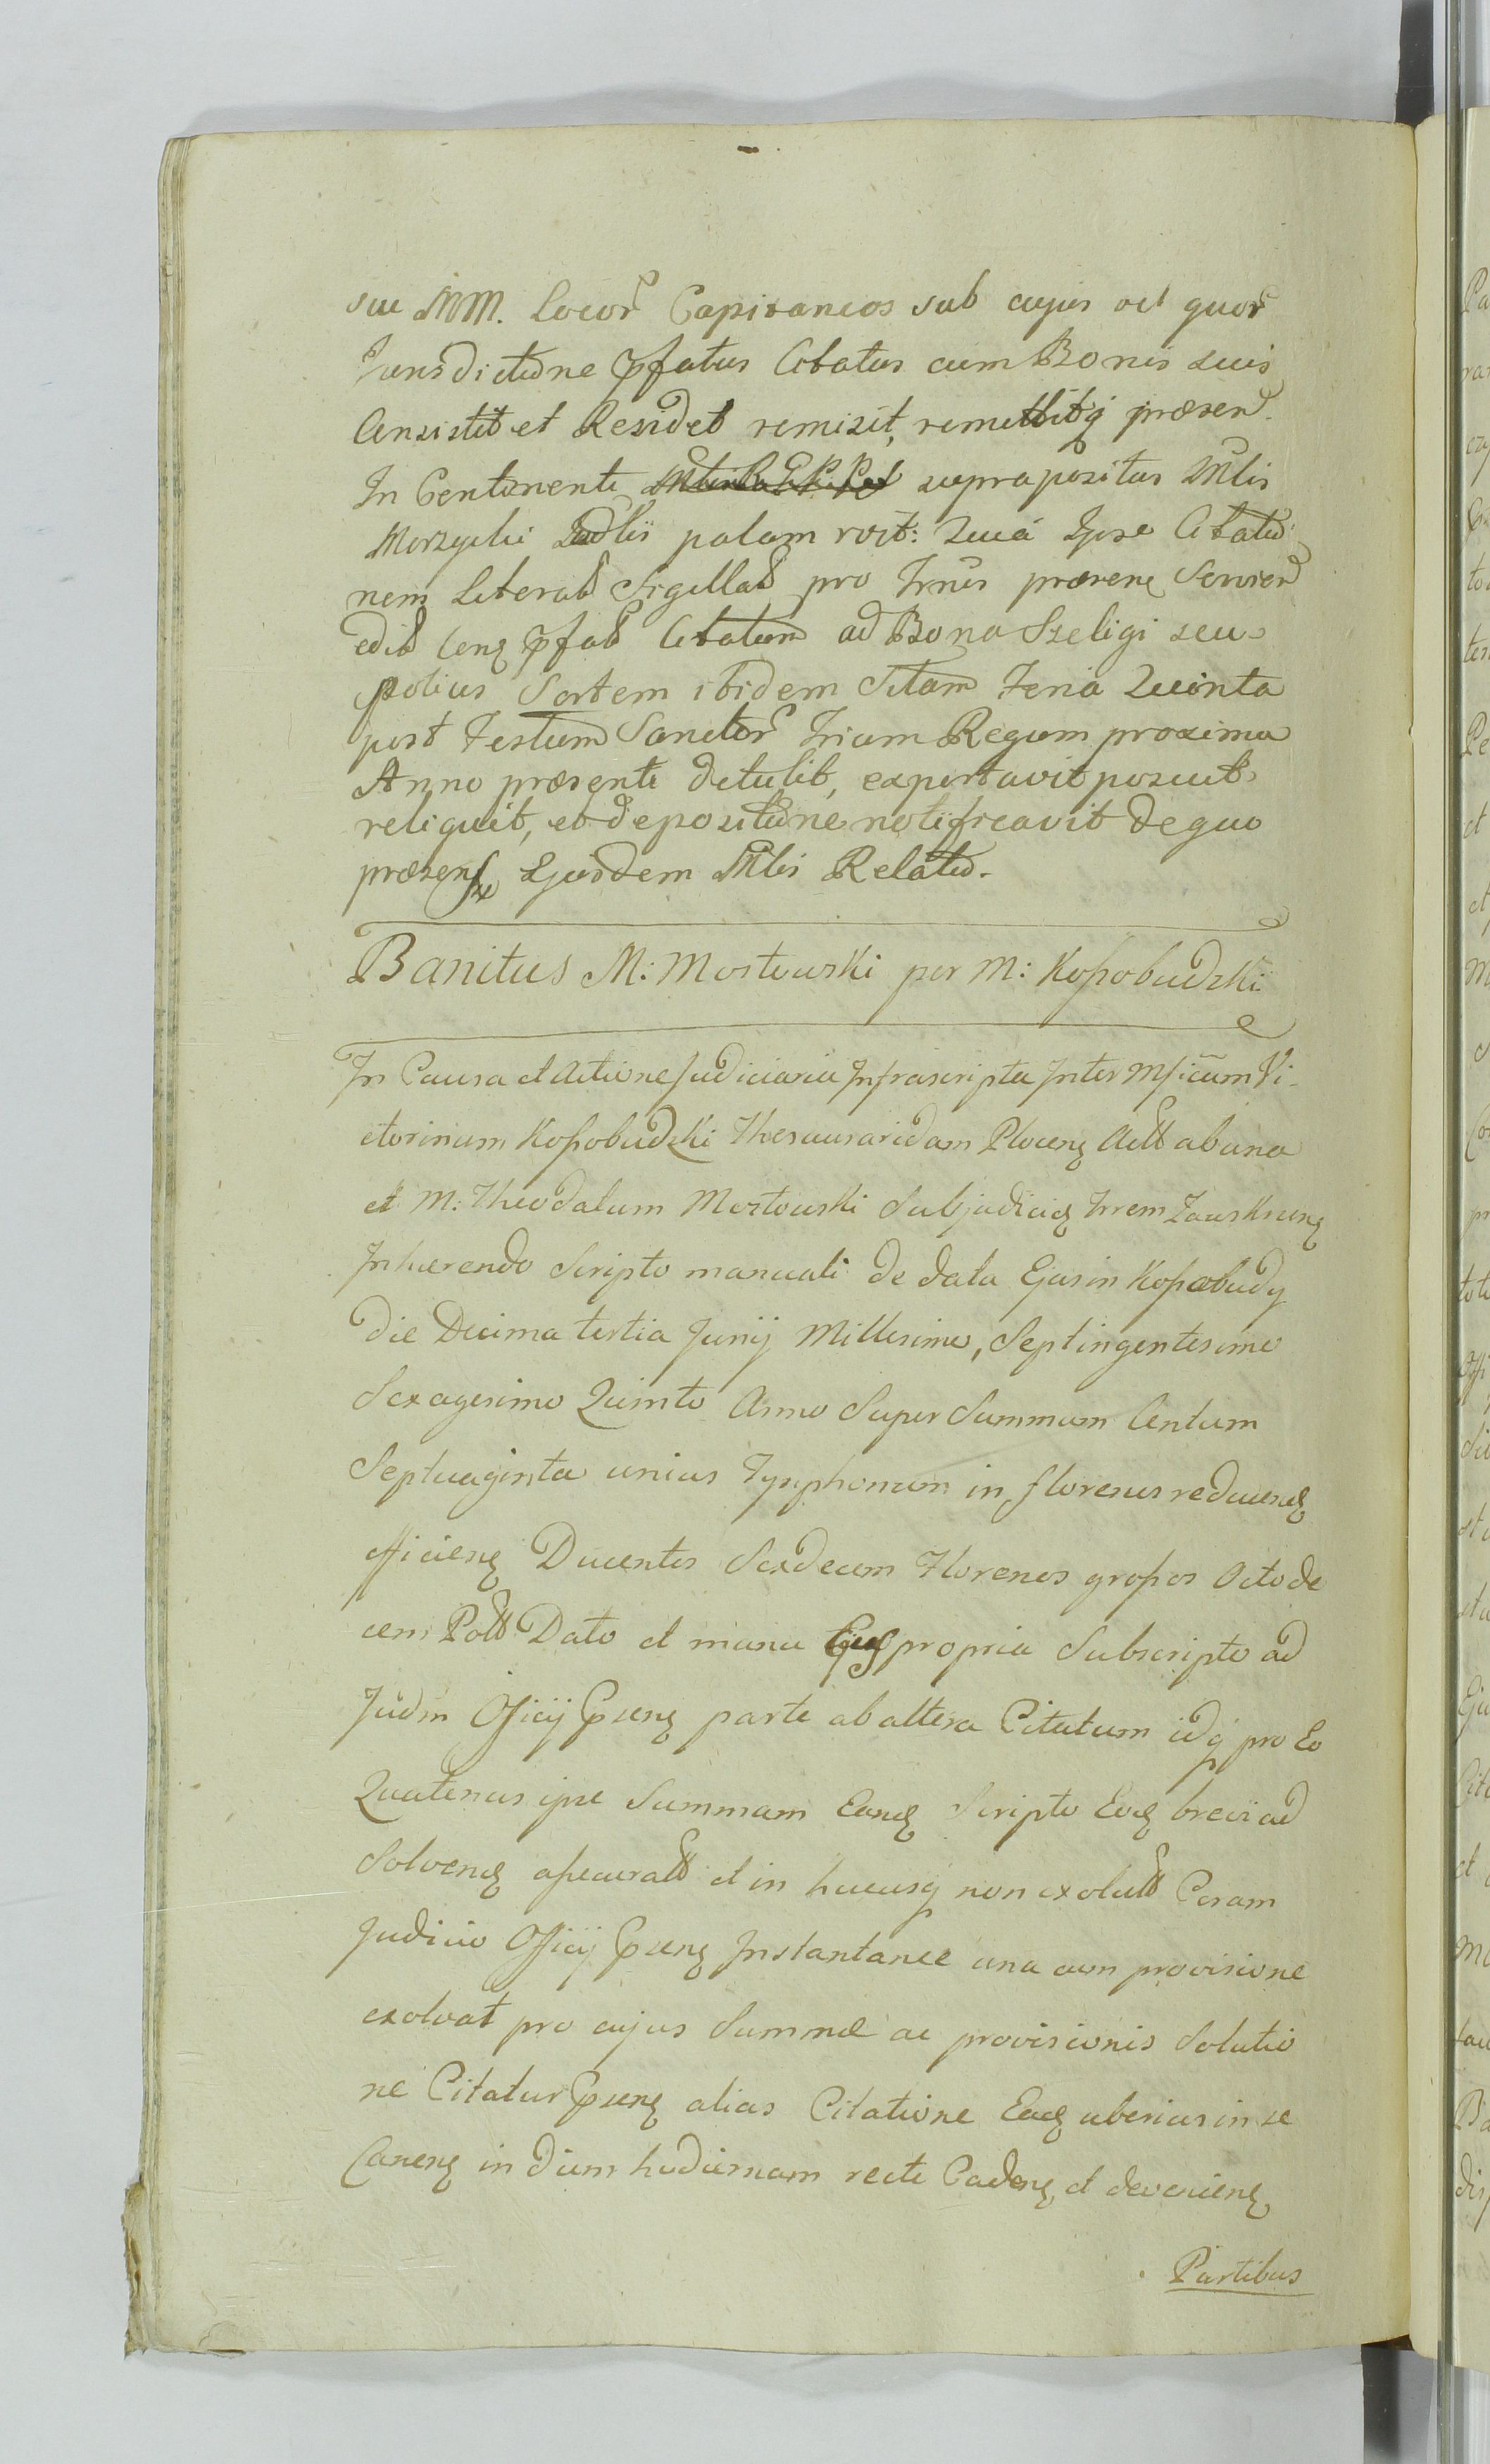 sue MM. Locor Capitaneos sub cujus vel quor
Jurisdictione pfatus Citatus cum Bonis suis
Consistit et Residet remisit, remittitq praesen
In Continenti supra positus Mlis
Morzycki palam rvit: Quia Ipse Citatio
nem Literat Sigillat pro Trnis praesenq Servien
edit Cenq pfat Citatum ad Bona Szeligi seu
potius Sortem ibidem Sitam Feria Quinta
post Festum Sanctor Trium Regum proxima
Anno praesenti detulit, exportavit posuit
reliquit, et depositione notificavit de quo
praesens Ejusdem Mlis Relatio.
Banitus M: Mostowski per M: Kossobudzki
In Causa et Actione Judiciaria Infrascripta Inter Mficum Vi-
ctorinum Kossobudzki Thesauraridam Plocenq Actt ab una
et M: Theodatum Mostowski Subjudicidq Trrem Zawskrenq
Inhaerendo Scripto manuali de data Ejus in Kossobudy
die Decima tertia Junij Millesimo, Septingentesimo
Sexagesimo Quinto Anno Super Summam Centum
Septuaginta unius Tynphonum in florenos reducendq
efficienq Ducentos Sexdecem Florenos grossos Octode
cem Poltt Dato et manu Ejusq propria Subscripto ad
Judm Officij Psenq parte ab altera Citatum idq pro Eo
Quatenus ipse Summam Eandq Scripto Eodq brevi ad
Solvendq assecuratt et in hucusq non exolutt Coram
Judicio Officij Psenq Instantanee una cum provisione
exolvat pro cujus Summae ac provisionis Solutio
ne Citatur Psenq alias Citatione Eadq uberius in se
Canenq in diem hodiernam recte Cadenq, et devenienq
Partibus